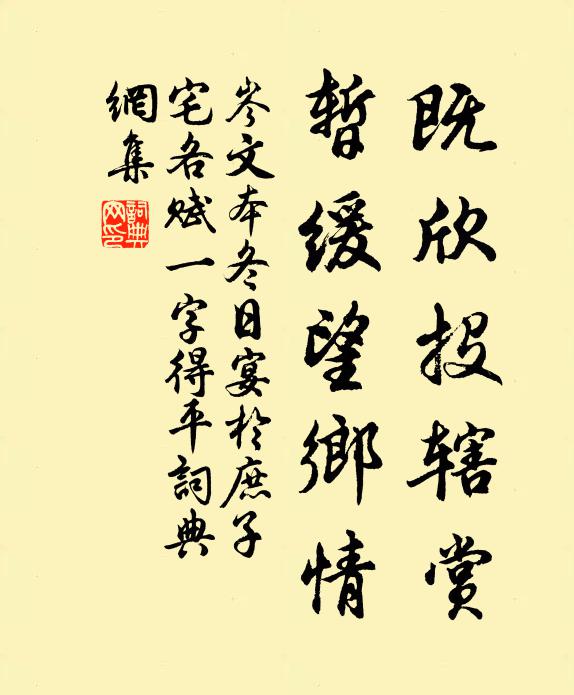 既欣投辖赏
暫緩望鄉情
岑文本冬日宴於庶子
宅各赋一字得平詞典
網集
詞典
网印